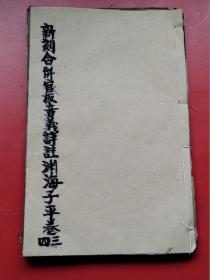 新刻合併官板音義詳註渊海子平卷三四